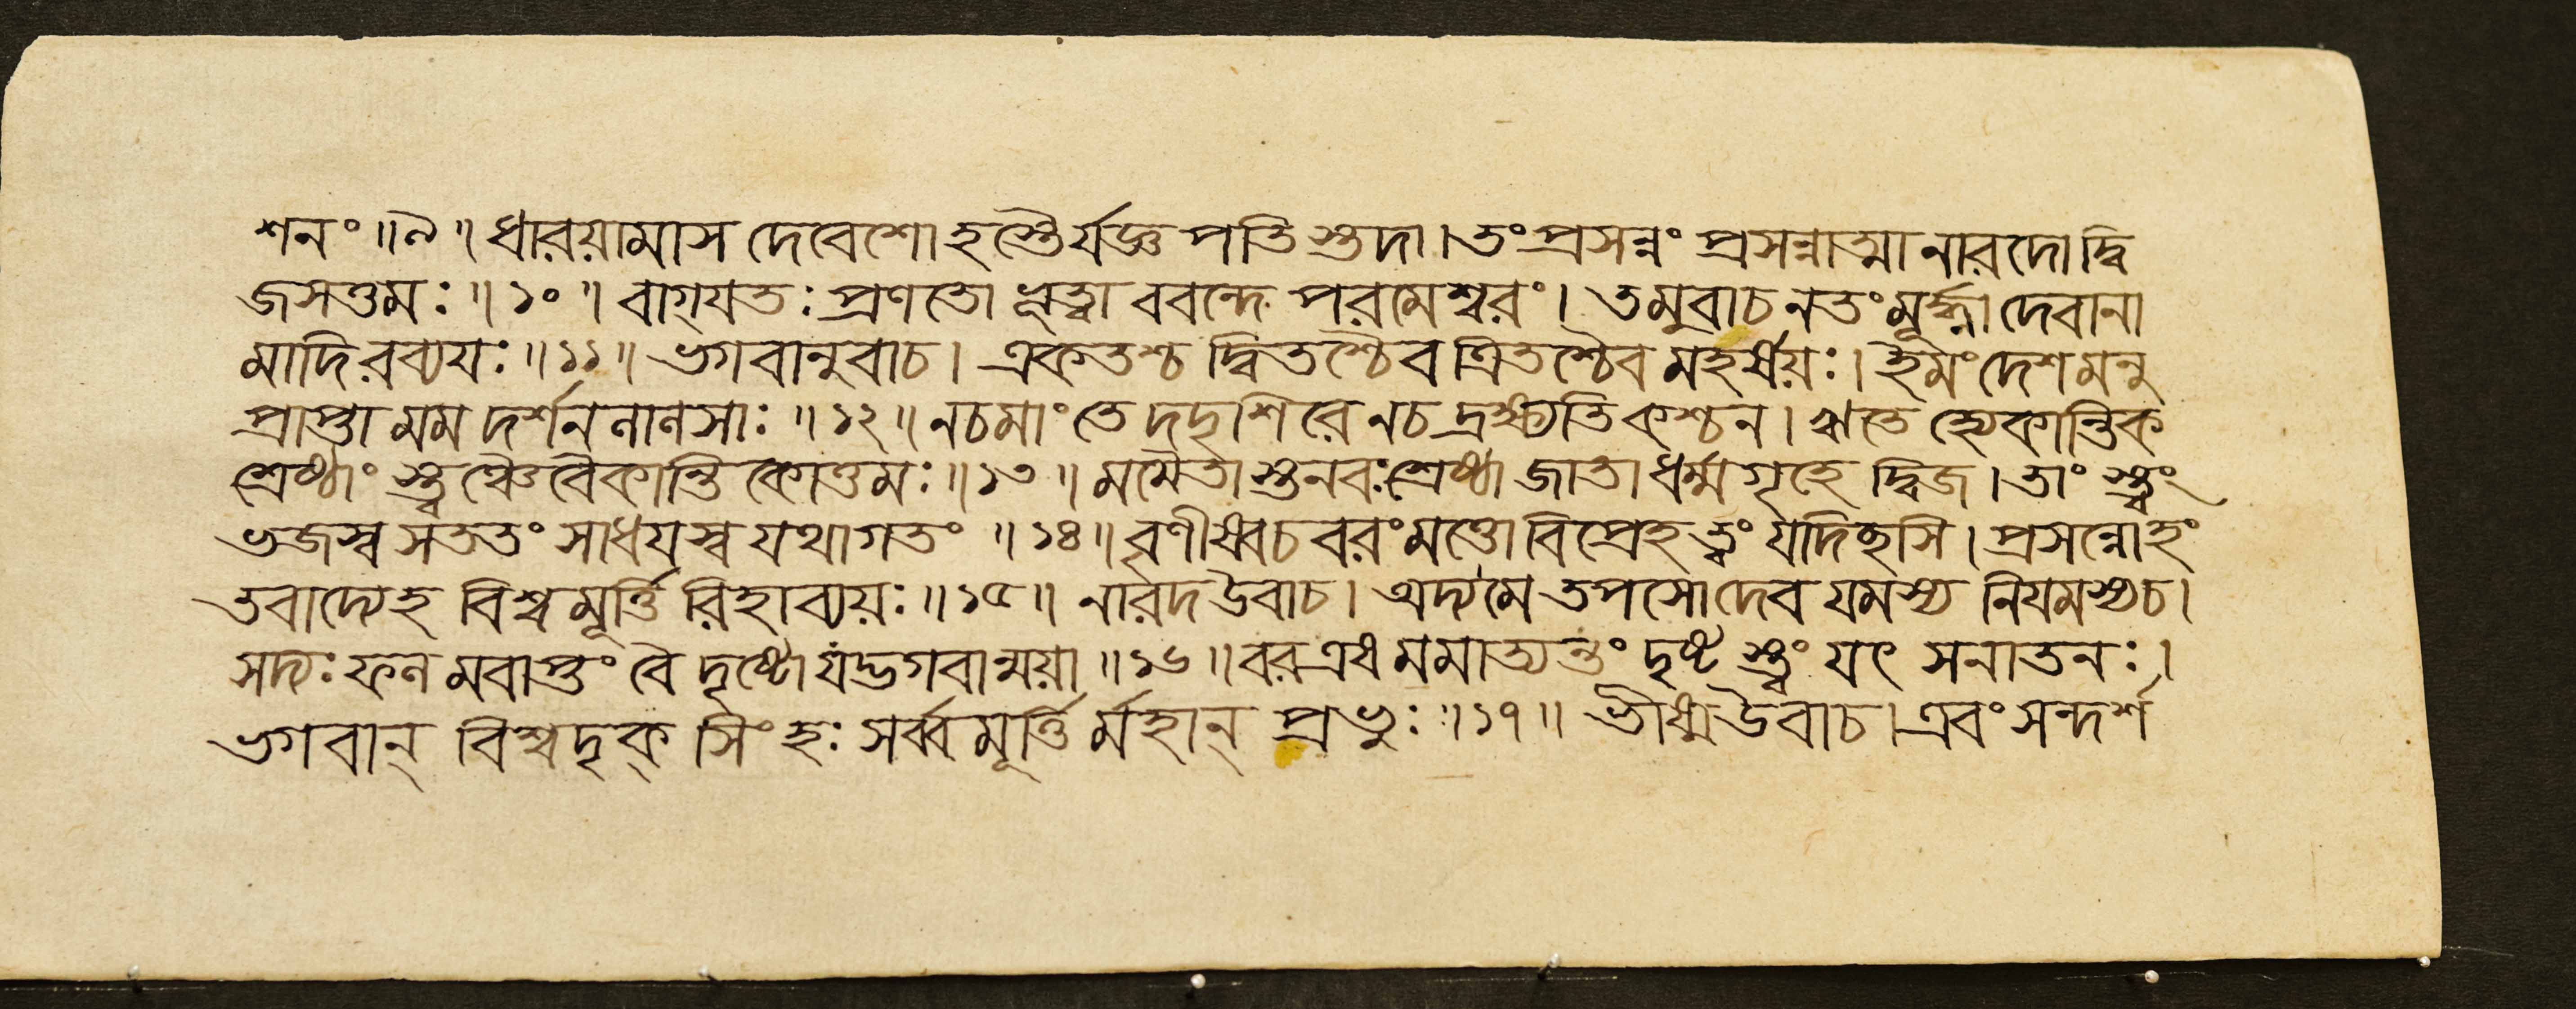 শনং॥৯॥ ধারয়ামাস দেবেশো হস্তৈর্যজ্ঞ পতি স্তদা। তং প্রসন্নং প্রসন্নাত্মা নারদো দ্বি
জসত্তমঃ॥১০॥ বাগ্যতঃ প্রণতো ভূত্বা ববন্দে পরমেশ্বরং। তমুবাচ নতং মূর্দ্ধ্না দেবানা
মাদি রব্যযঃ॥১১॥ ভগবানুবাচ। একতশ্চ দ্বিতশ্চৈব ত্রিতশ্চৈব মহর্ষয়ঃ। ইমং দেশ মনু
প্রাপ্তা মম দর্শন লালসাঃ॥১২॥ নচমাং তে দদৃশিরে নচ দ্রক্ষ্যতি কশ্চন। ঋতে হ্যেকান্তিক
শ্রেষ্ঠাং স্ত্বঞ্চৈবৈকান্তি কোত্তমঃ॥১৩॥ মমৈতা স্তনবঃ শ্রেষ্ঠা জাতা ধর্ম্মগৃহে দ্বিজ। তাং স্ত্বং
ভজস্ব সততং সাধযস্ব যথাগতং॥১৪॥ বৃণীষ্বচ বরং মত্তো বিপ্রেহ ত্বং যদিছসি। প্রসন্নোহং
তবাদ্যেহ বিশ্বমূর্ত্তি রিহাব্যয়ঃ॥১৫॥ নারদ উবাচ। অদ্য মে তপসো দেব যমস্য নিযমস্যচ।
সদ্যঃ ফল মবাপ্তং বৈ দৃষ্টো যদ্ভগবান্ময়া॥১৬॥ বর এষ মমাত্যন্তং দৃষ্ট স্ত্বং যৎ সনাতনঃ।
ভগবান্ বিশ্বদৃক্ সিংহঃ সর্ব্বমূর্ত্তি র্মহান্ প্রভুঃ॥১৭॥ ভীষ্ম উবাচ। এবং সন্দর্শ